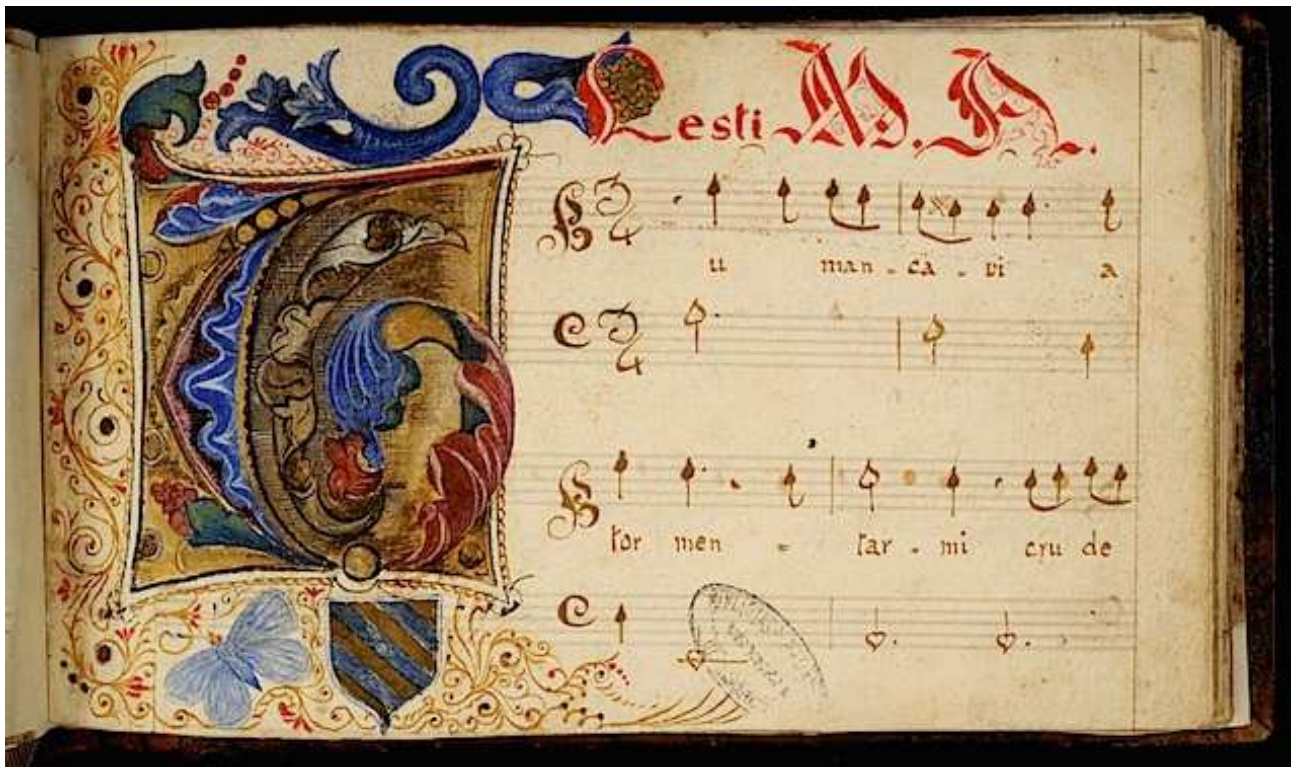 Cesti M. A.
Tu man - ca - vi a
tor men - tar - mi cru de